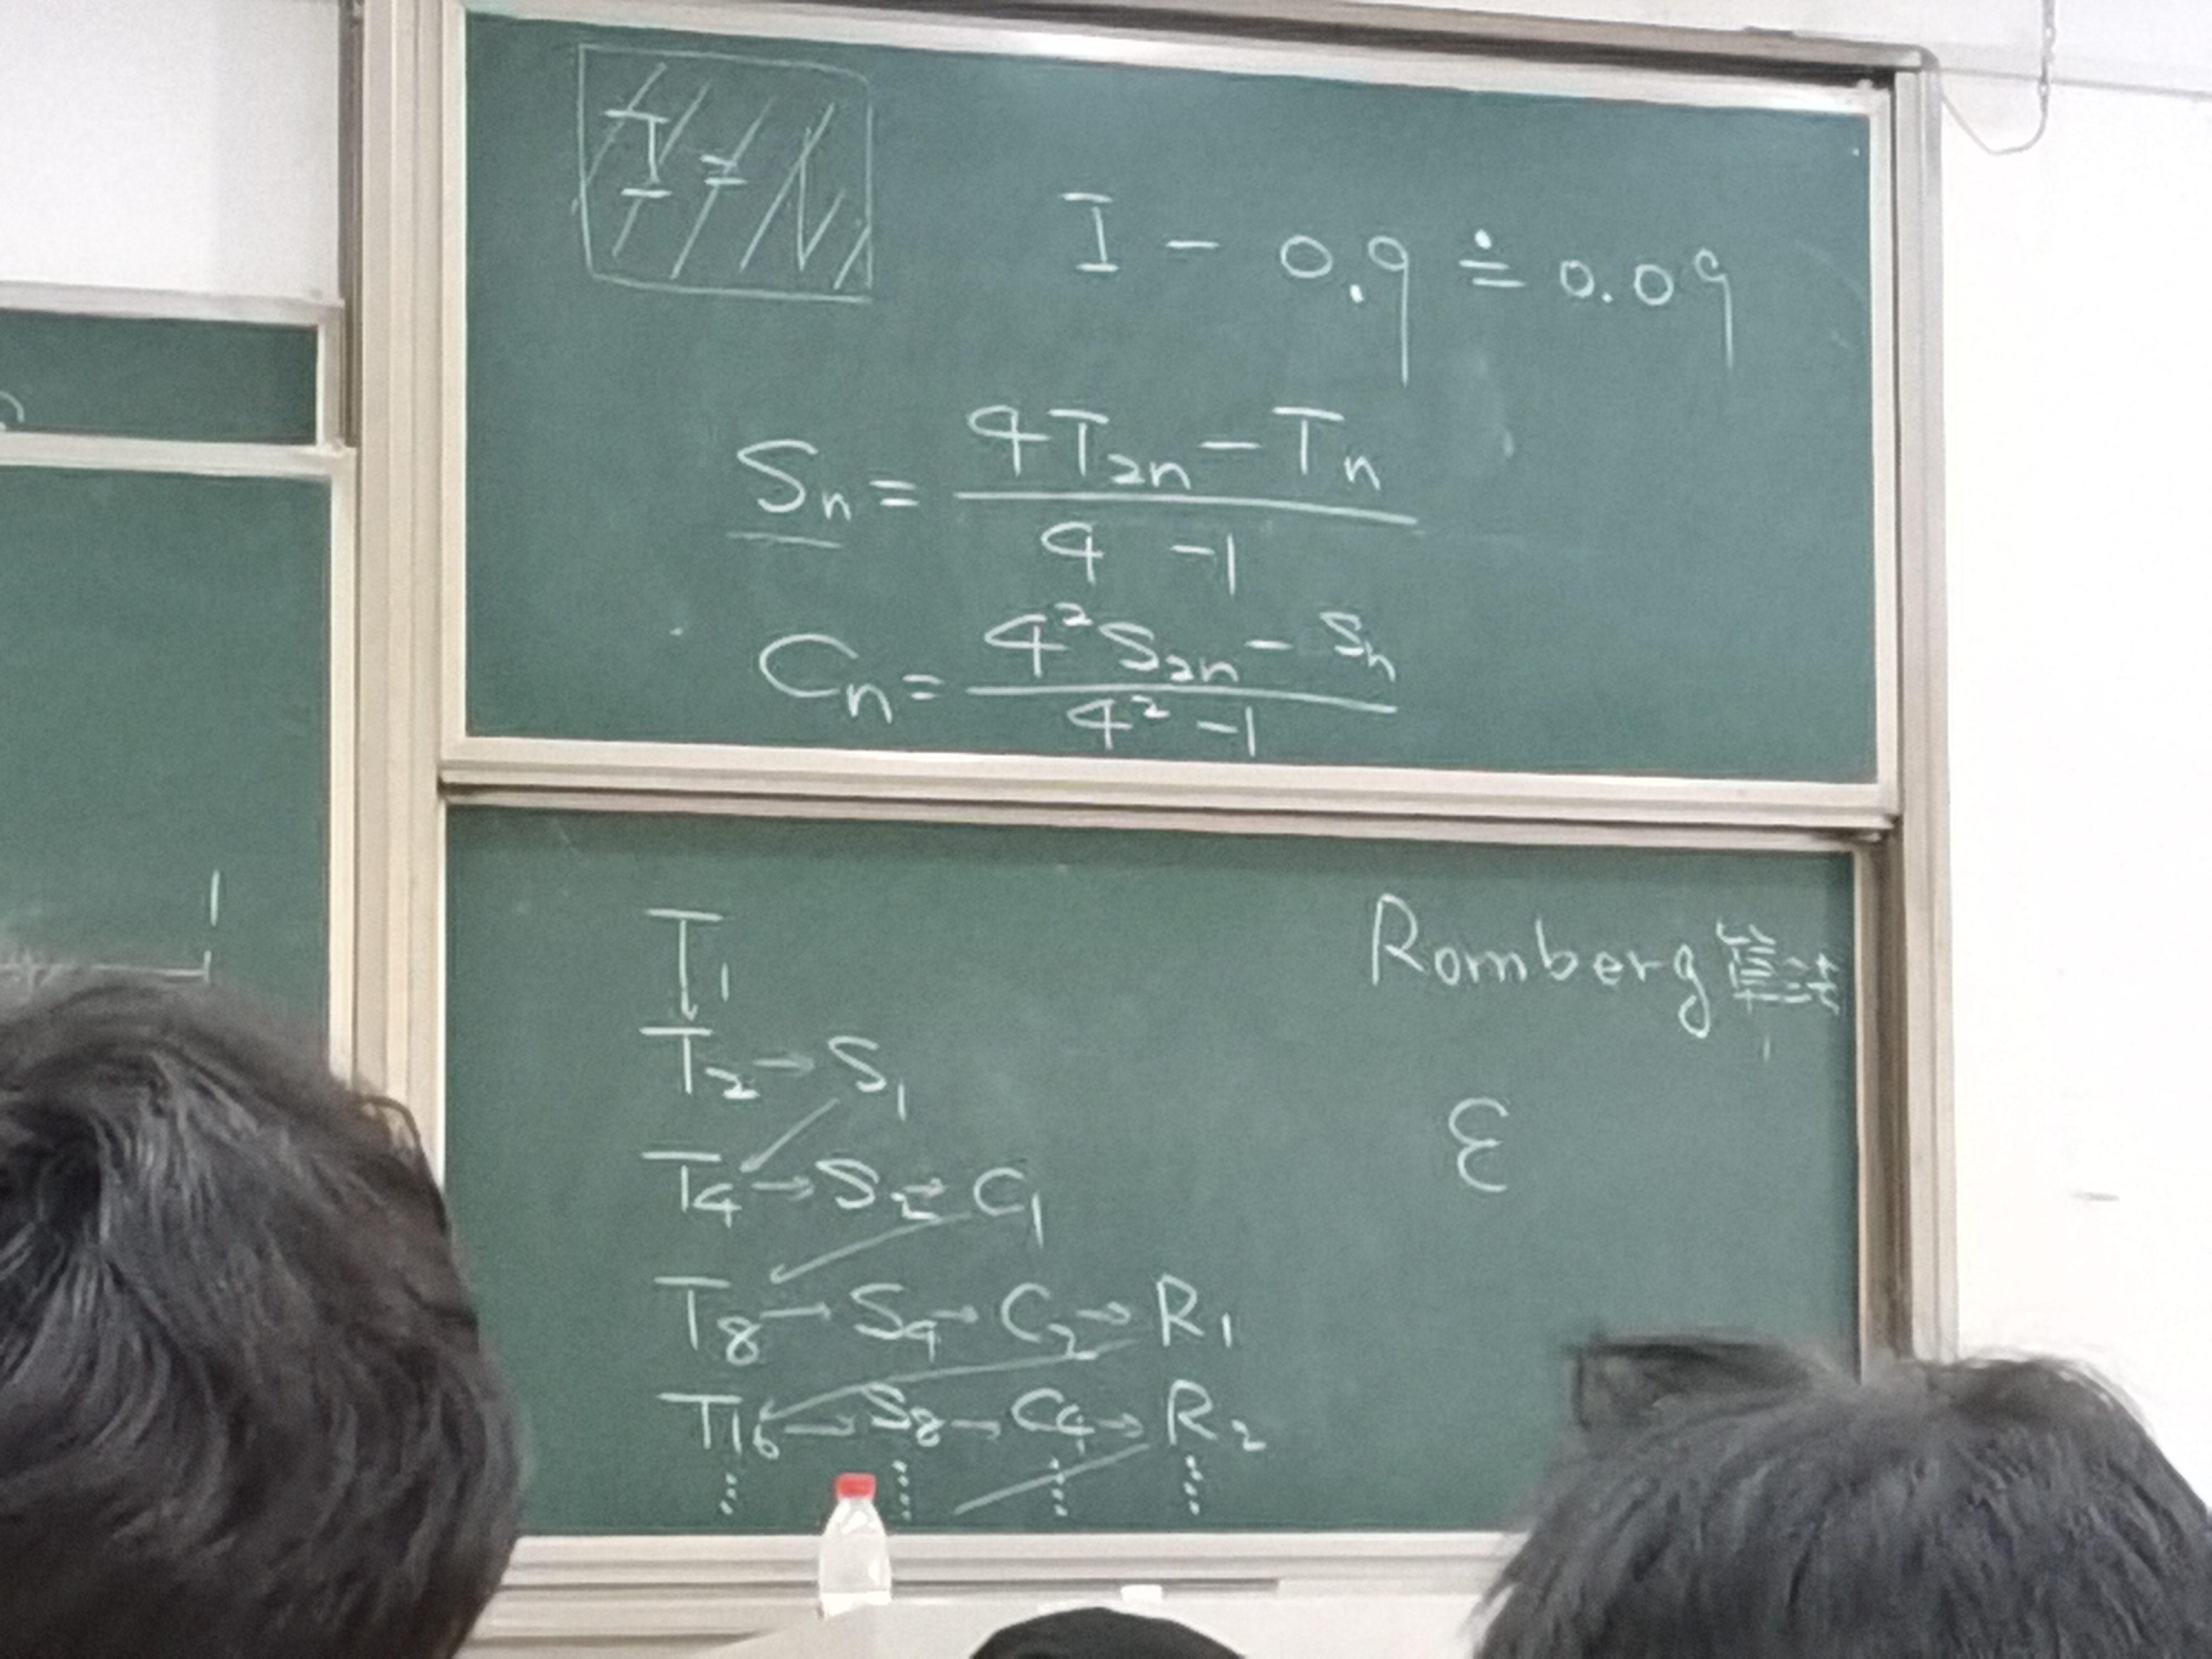 I =
I - 0.9 ≐ 0.09
Sn = (4T2n - Tn) / (4 - 1)
Cn = (4²S2n - Sn) / (4² - 1)
Romberg 算法
T1
T2 → S1
ε
T4 → S2 → C1
T8 → S4 → C2 → R1
T16 → S8 → C4 → R2